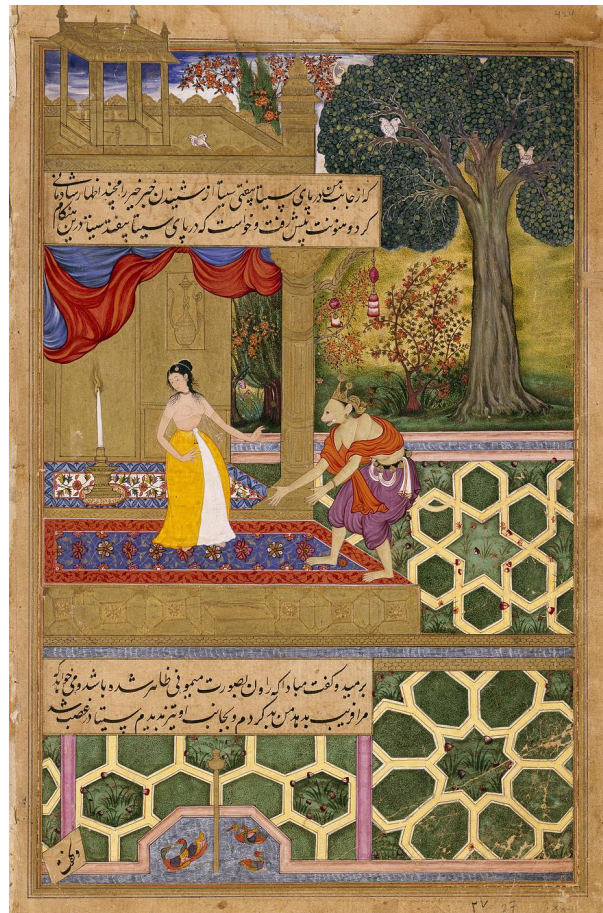 که از جانب من در پای سیتا بیفتی سیتا از شنیدن خبر خیر رامچند اظهار شادمانی
کرد و منونت پیش رفت و خواست که در پای سیتا بیفتد سیتا درین هنگام
برمید و گفت مبادا که راون بصورت میمونی ظاهر شده باشد و می خواهد که
مرا فریب بدهد من صبر کردم و بجانب او تیز ندیدم سیتا در غضب شد
۲۷ 27